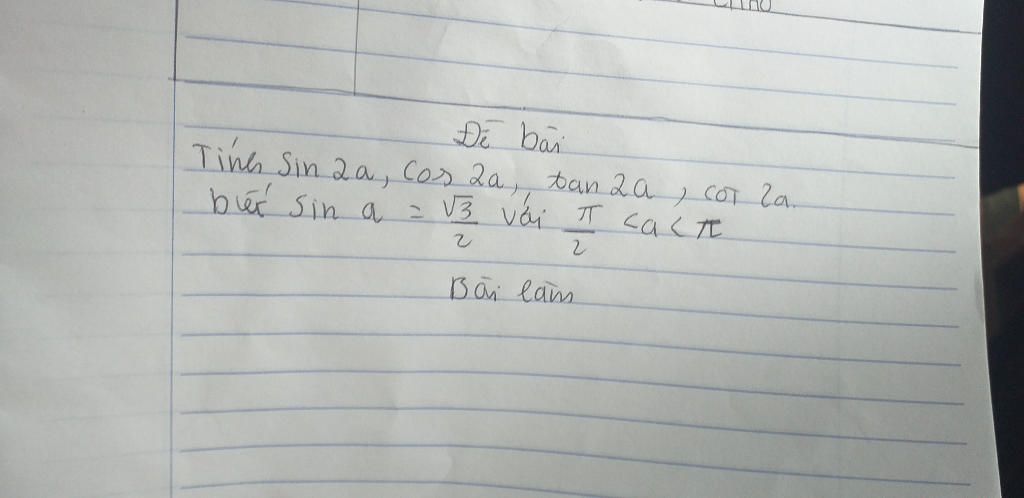 Đề bài
Tính sin 2a, cos 2a, tan 2a, cot 2a.
biết sin a = √3/2 với π/2 < a < π
Bài làm